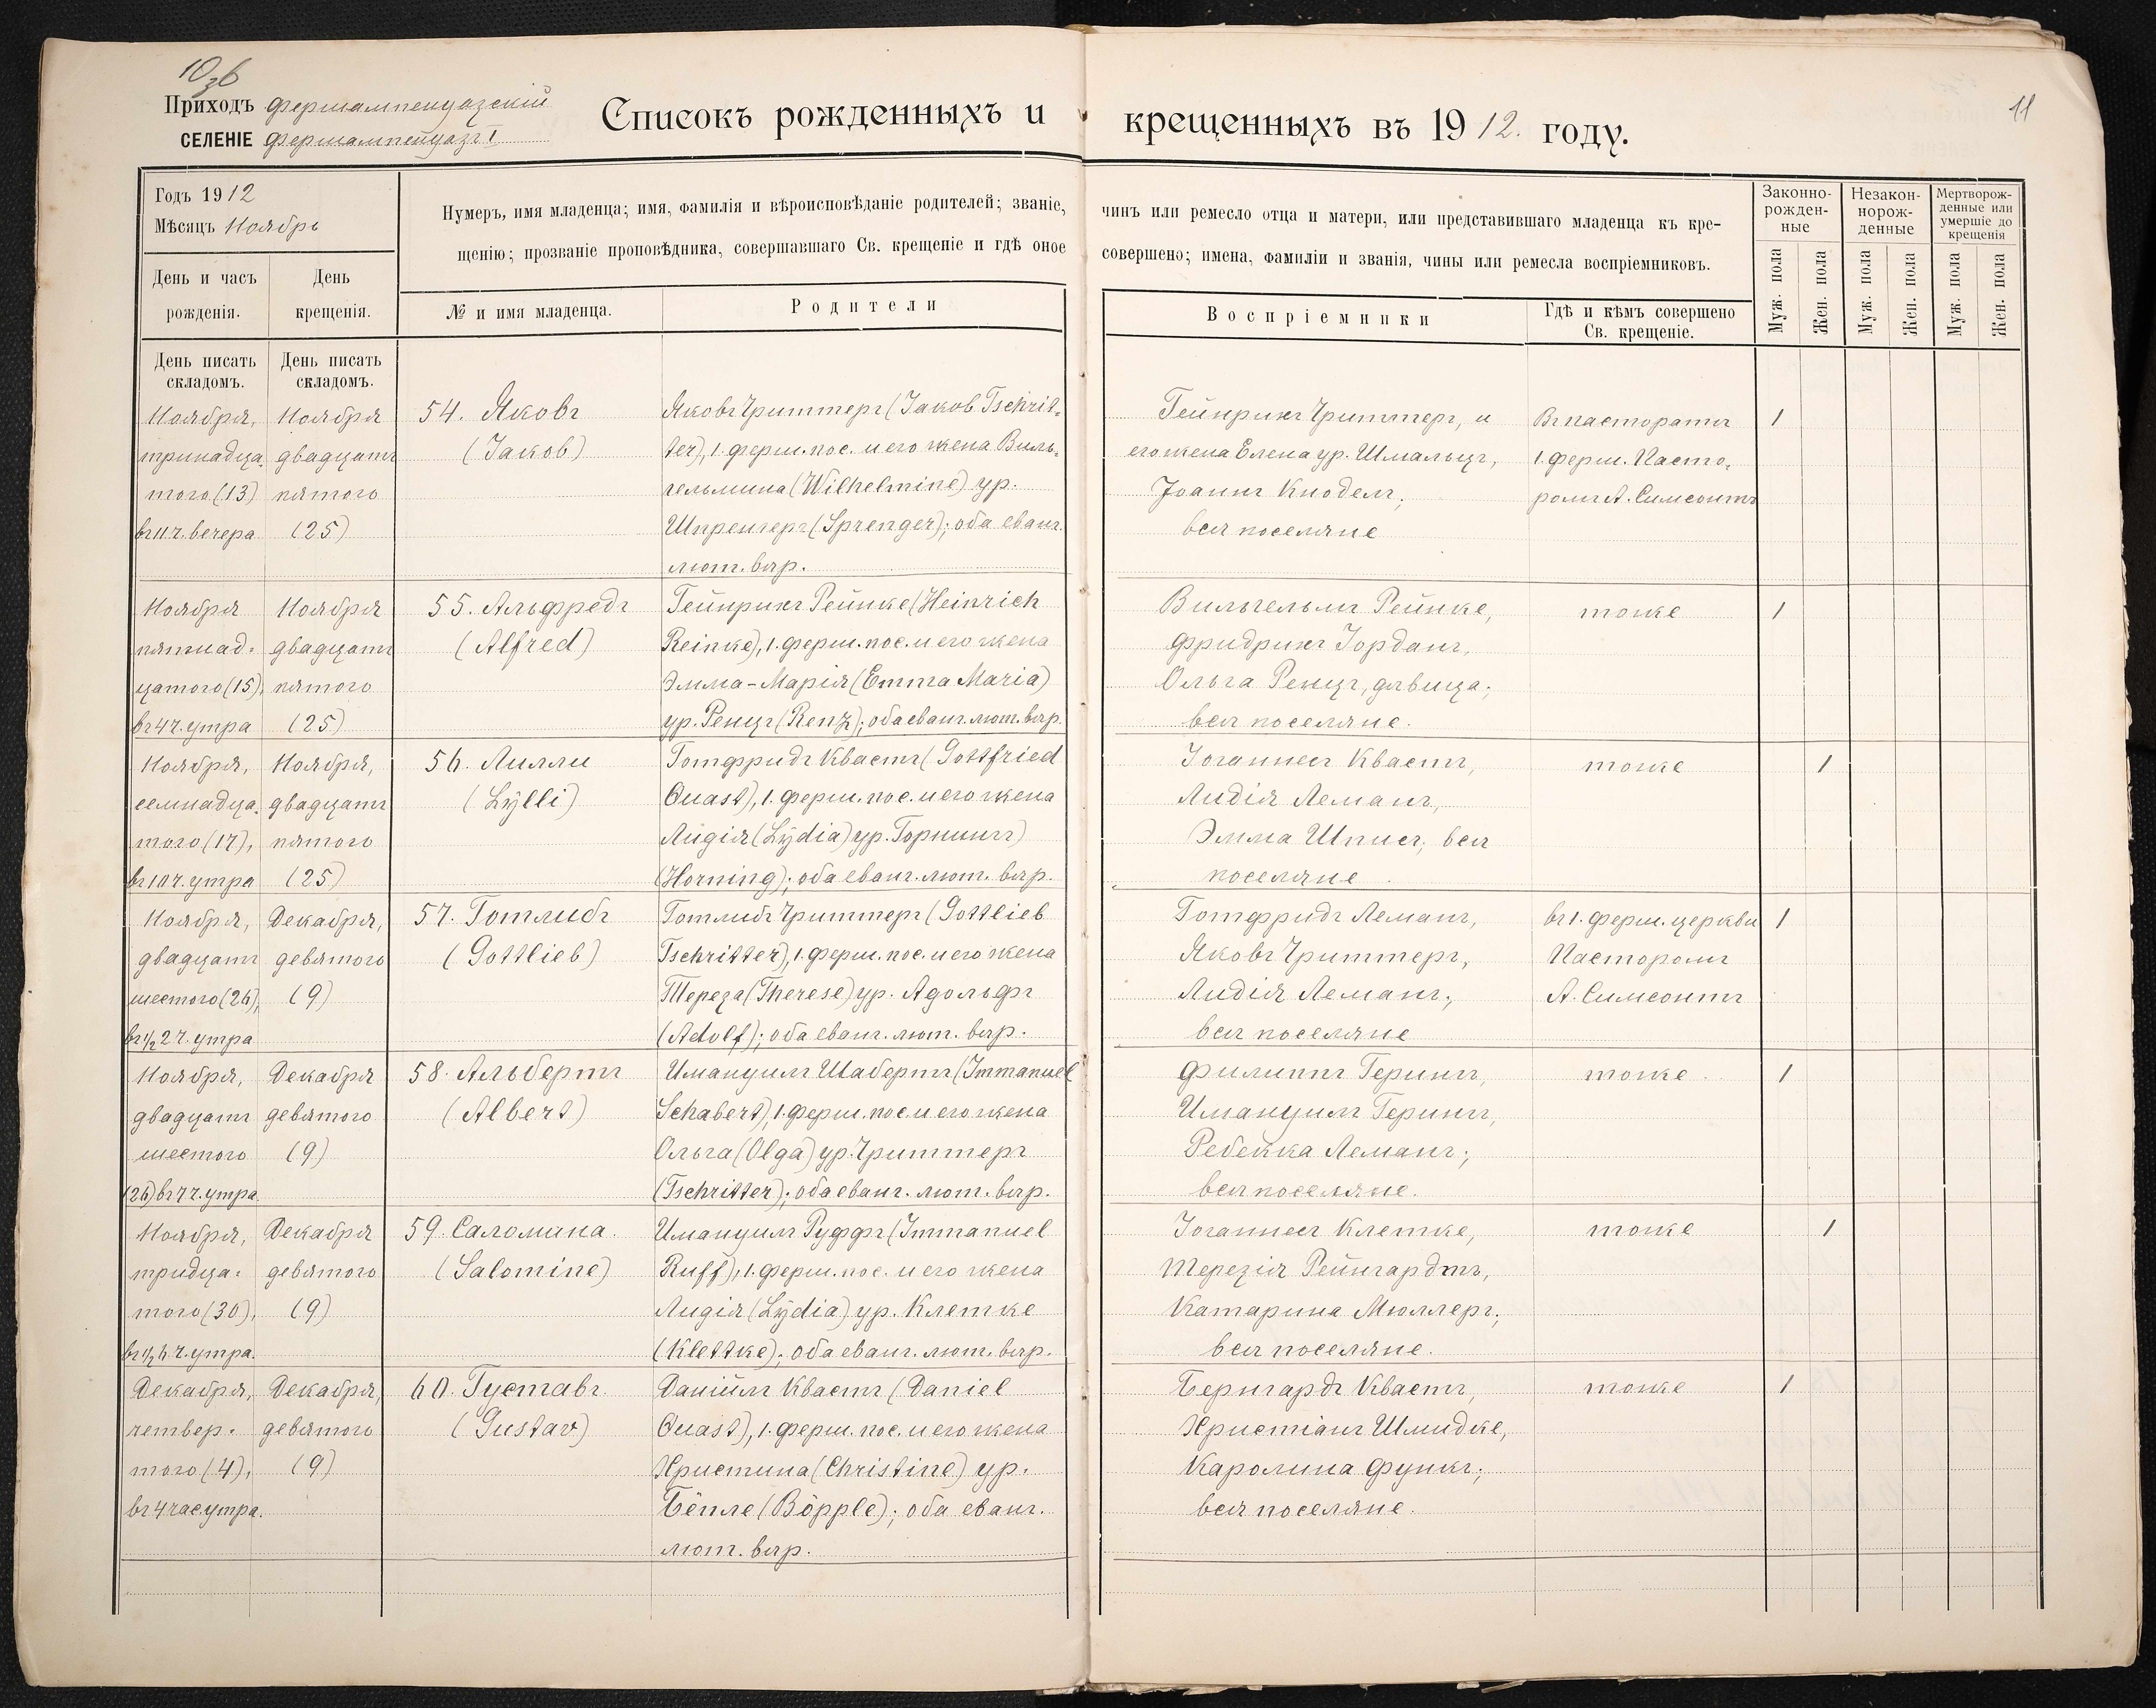 10 зб
11
Приходъ Фершампенуазскій
СЕЛЕНІЕ Фершампенуазъ I
Списокъ рожденныхъ и крещенныхъ въ 1912. году.
Годъ 1912
Мѣсяцъ Ноябрь
День и часъ рожденія.
День крещенія.
Нумеръ, имя младенца; имя, фамилія и вѣроисповѣданіе родителей; званіе, чинъ или ремесло отца и матери, или представившаго младенца къ кре-
щенію; прозваніе проповѣдника, совершавшаго Св. крещеніе и гдѣ оное совершено; имена, фамиліи и званія, чины или ремесла воспріемниковъ.
№ и имя младенца.
Родители
Воспріемники
Гдѣ и кѣмъ совершено
Св. крещеніе.
Законно-
рожден-
ные
Незакон-
норож-
денные
Мертворож-
денные или
умершіе до
крещенія
Муж. пола
Жен. пола
Муж. пола
Жен. пола
Муж. пола
Жен. пола
День писать
складомъ.
День писать
складомъ.
Ноября,
тринадца-
таго (13)
въ 11 ч. вечера
Ноября
двадцать
пятого
(25)
54. Яковъ
(Jакоb)
Яковъ Чриттеръ (Jакоb Tschrit-
ter), 1. ферш. пос. и его жена Виль-
гельмина (Wilhelmine) ур.
Шпренгеръ (Sprenger); оба еванг.
лют. вѣр.
Гейнрихъ Чриттеръ, и
его жена Елена ур. Шмальцъ,
Іоаннъ Кнодель;
всѣ поселяне
Въ пасторатѣ
1. ферш. Пасто-
ромъ А. Симсонъ
1
Ноября
пятнад-
цатого (15),
въ 4 ч. утра
Ноября
двадцать
пятого
(25)
55. Альфредъ
(Alfred)
Гейнрихъ Рейнке (Heinrich
Reinke), 1. ферш. пос. и его жена
Эмма-Марія (Emma Maria)
ур. Ренцъ (Renz); оба еванг. лют. вѣр.
Вильгельмъ Рейнке,
Фридрихъ Іорданъ,
Ольга Ренцъ, дѣвица;
всѣ поселяне.
тоже
1
Ноября,
семнадца-
того (17),
въ 10 ч. утра
Ноября,
двадцать
пятого
(25)
56. Лилли
(Lÿlli)
Готфридъ Квастъ (Gottfried
Quast), 1. ферш. пос. и его жена
Лидія (Lÿdia) ур. Горнингъ)
(Horning); оба еванг. лют. вѣр.
Іоганнесъ Квастъ,
Лидія Леманъ,
Эмма Шписъ; всѣ
поселяне.
тоже
1
Ноября,
двадцать
шестого (26),
въ 1/2 2 ч. утра
Декабря,
девятого
(9)
57. Готлибъ
(Gottlieb)
Готлибъ Чриттеръ (Gottlieb
Tschritter), 1. ферш. пос. и его жена
Тереза (Therese) ур. Адольфъ
(Adolf); оба еванг. лют. вѣр.
Готфридъ Леманъ,
Яковъ Чриттеръ,
Лидія Леманъ;
всѣ поселяне
въ 1. ферш. церкви
Пасторомъ
А. Симсонъ
1
Ноября,
двадцать
шестого
(26) въ 7 ч. утра
Декабря
девятого
(9)
58. Альбертъ
(Albert)
Имануилъ Шабертъ (Immanuel
Schabert), 1. ферш. пос. и его жена
Ольга (Olga) ур. Чриттеръ
(Tschritter); оба еванг. лют. вѣр.
Филиппъ Герингъ,
Имануилъ Герингъ,
Ребекка Леманъ;
всѣ поселяне.
тоже
1
Ноября,
тридца-
того (30),
въ 1/2 6 ч. утра.
Декабря
девятого
(9)
59. Саломина.
(Salomine)
Имануилъ Руффъ (Immanuel
Ruff), 1. ферш. пос. и его жена
Лидія (Lÿdia) ур. Клетке
(Klettke); оба еванг. лют. вѣр.
Іоганнесъ Клетке,
Терезія Рейнгардтъ,
Катарина Мюллеръ;
всѣ поселяне.
тоже
1
Декабря,
четвер-
того (4),
въ 4 час. утра.
Декабря,
девятого
(9)
60. Густавъ.
(Gustav)
Даніилъ Квастъ (Daniel
Quast), 1. ферш. пос. и его жена
Христина (Christine) ур.
Бёпле (Böpple); оба еванг.
лют. вѣр.
Бернгардъ Квастъ,
Христіанъ Шмидке,
Каролина Функъ;
всѣ поселяне.
тоже
1